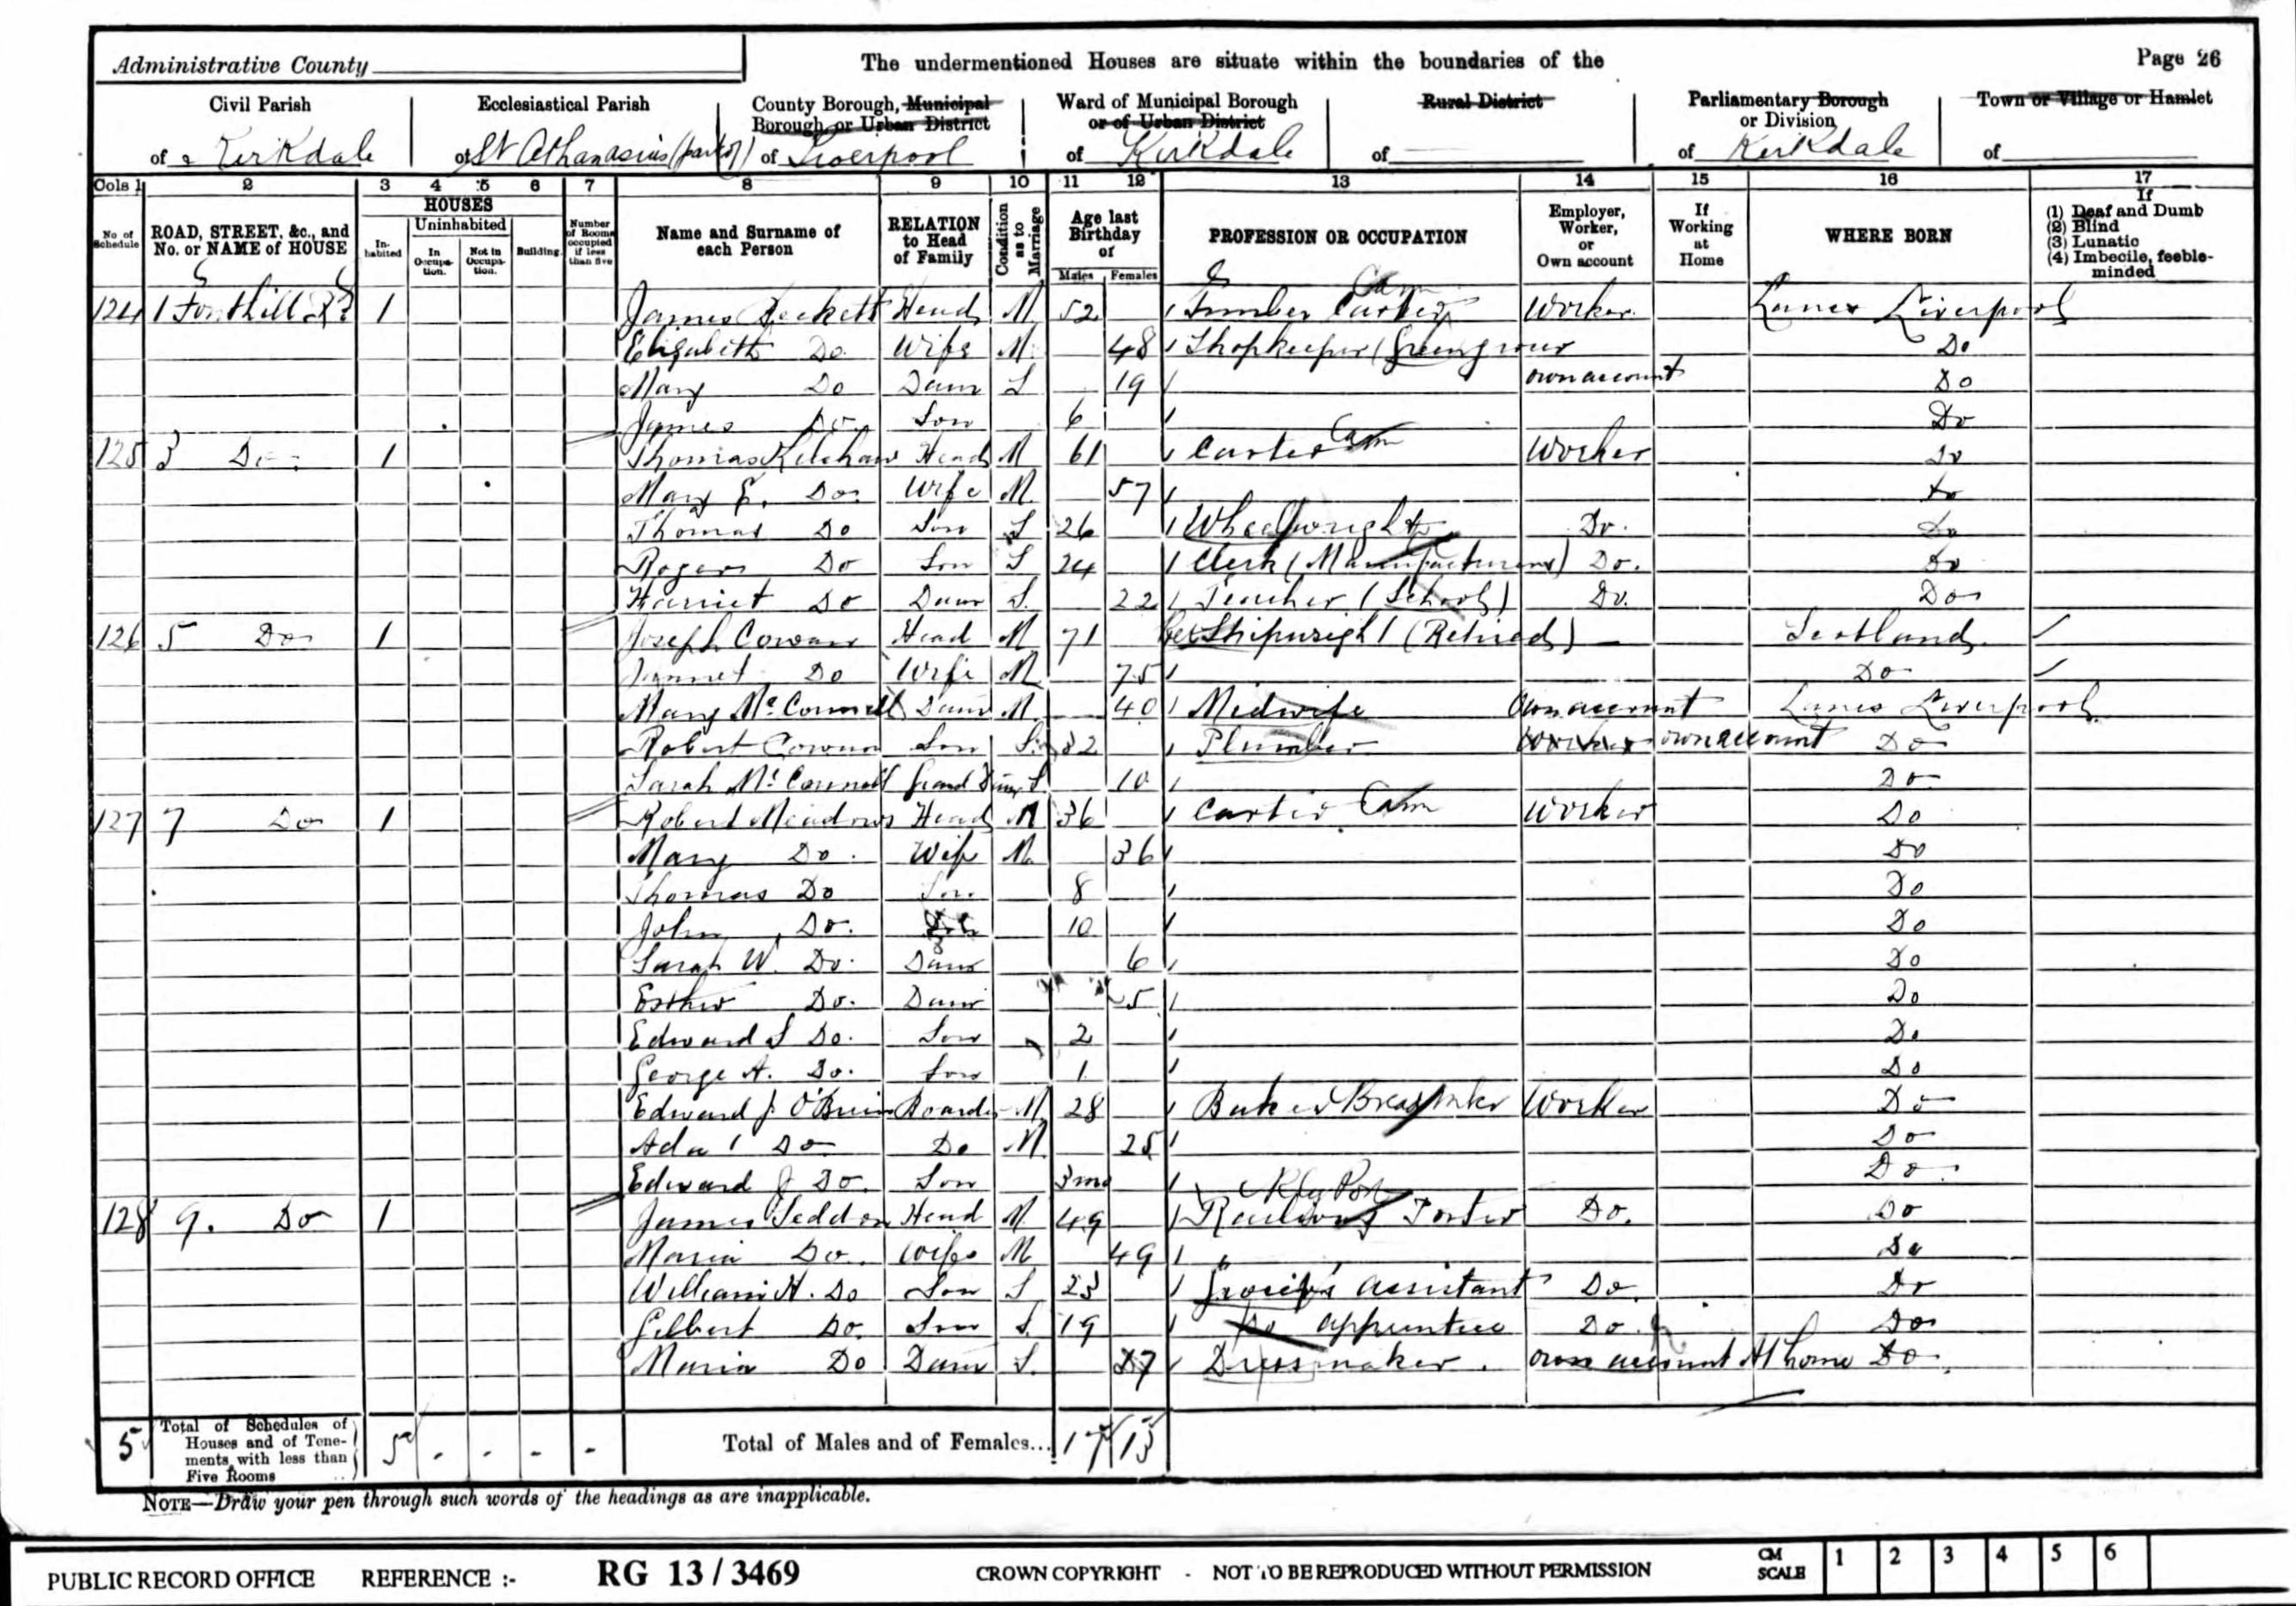 Administrative County
The undermentioned Houses are situate within the boundaries of the
Page 26
Civil Parish of Kirkdale
Ecclesiastical Parish of St Athanasius (part of)
County Borough, Municipal Borough or Urban District of Liverpool
Ward of Municipal Borough or of Urban District of Kirkdale
Rural District of
Parliamentary Borough or Division of Kirkdale
Town or Village or Hamlet of
Cols 1 2 3 4 5 6 7 8 9 10 11 12 13 14 15 16 17
No. of Schedule
ROAD, STREET, &c., and No. or NAME of HOUSE
HOUSES
Inhabited
Uninhabited
In Occupation.
Not in Occupation.
Building.
Number of Rooms occupied if less than five
Name and Surname of each Person
RELATION to Head of Family
Condition as to Marriage
Age last Birthday of
Males Females
PROFESSION OR OCCUPATION
Employer, Worker, or Own account
If Working at Home
WHERE BORN
If
(1) Deaf and Dumb
(2) Blind
(3) Lunatic
(4) Imbecile, feeble-minded
124 1 Fonthill Rd 1 James Head M 52 Carter Worker Lancs Liverpool
Elizabeth Do Wife M 48 Shopkeeper (Greengrocer own account Do
Mary Do Daur S 19 Do
James Do Son 6 Do
125 3 Do 1 Thomas Kilshaw Head M 61 Carter Worker Do
Mary E. Do Wife M 57 Do
Thomas Do Son S 26 Wheelwright Do. Do
Roger Do Son S 24 Clerk (Manufacturers) Do. Do
Harriet Do Daur S. 22 Teacher (School) Do. Do
126 5 Do 1 Joseph Cowan Head M 71 Shipwright (Retired) Scotland
Jannet Do Wife M 75 Do
Mary McConnell Daur M 40 Midwife Own account Lancs Liverpool
Robert Cowan Son S. 32 Plumber Worker own account Do
Sarah McConnell Grand Daur S 10 Do
127 7 Do 1 Robert Meadows Head M 36 Carter Worker Do
Mary Do. Wife M 36 Do
Thomas Do Son 8 Do
John Do. 10 Do
Sarah W. Do. Daur 6 Do
Esther Do. Daur 5 Do
Edward S Do. Son 2 Do
George A. Do. Son 1 Do
Edward J O'Brien Boarder M 28 Baker Worker Do
Ada Do Do M. 25 Do
Edward J Do. Son 3 mo Do
128 9. Do 1 James Seddon Head M 49 Railway Porter Do. Do
Maria Do. Wife M 49 Do
William H. Do Son S 23 Grocer's assistant Do. Do
Gilbert Do. Son S. 19 Do apprentice Do. Do
Maria Do Daur S. 27 Dressmaker. own account At home Do.
5 Total of Schedules of Houses and of Tenements with less than Five Rooms 5 - - - - Total of Males and of Females... 17 13
NOTE—Draw your pen through such words of the headings as are inapplicable.
PUBLIC RECORD OFFICE REFERENCE :- RG 13 / 3469 CROWN COPYRIGHT - NOT TO BE REPRODUCED WITHOUT PERMISSION CM SCALE 1 2 3 4 5 6